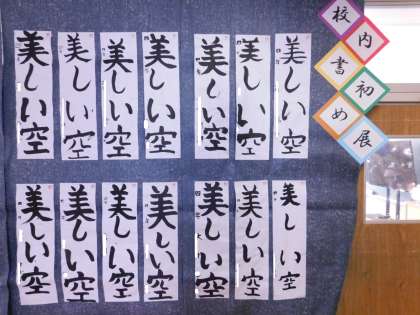 校内書初め展
美しい空
美しい空
美しい空
美しい空
美しい空
美しい空
美しい空
美しい空
美しい空
美しい空
美しい空
美しい空
美しい空
美しい空